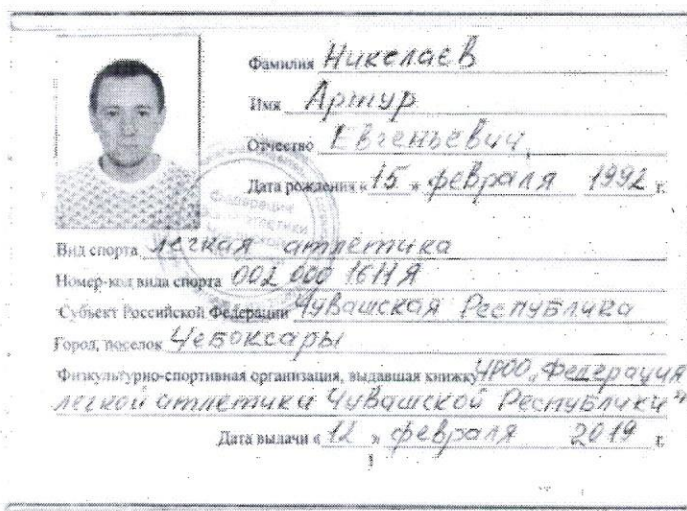 Фамилия Николаев
Имя Артур
Отчество Евгеньевич
Дата рождения «15» февраля 1992 г.
Вид спорта легкая атлетика
Номер-код вида спорта 002 000 1611 Я
Субъект Российской Федерации Чувашская Республика
Город, поселок Чебоксары
Физкультурно-спортивная организация, выдавшая книжку ЧРОО „Федерация
легкой атлетики Чувашской Республики"
Дата выдачи «12» февраля 2019 г.
1